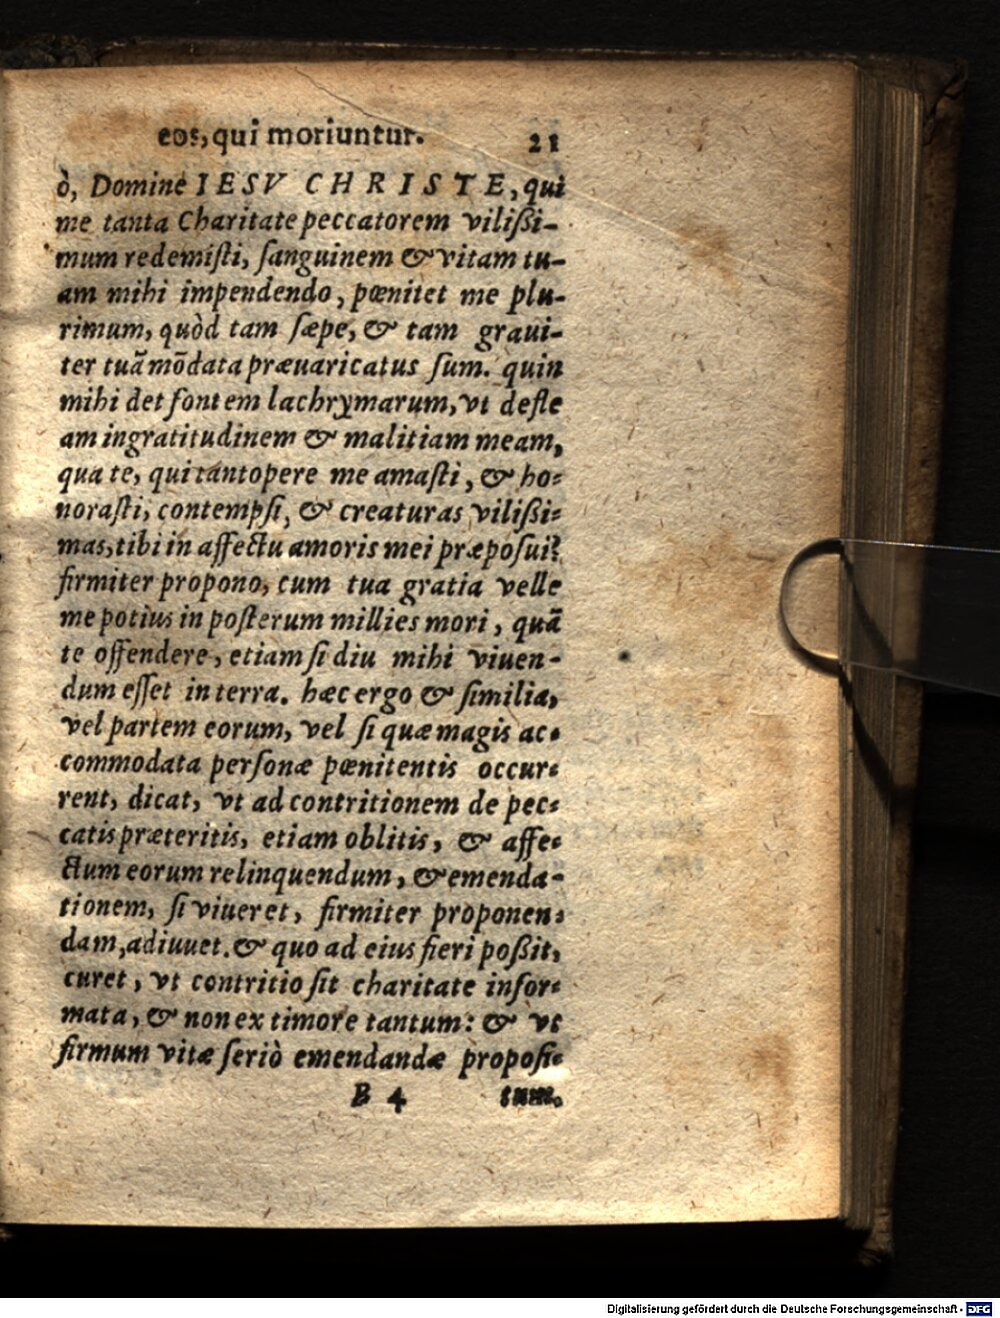 eos, qui moriuntur. 21
ò, Domine IESV CHRISTE, qui
me tanta Charitate peccatorem vilißi-
mum redemisti, sanguinem & vitam tu-
am mihi impendendo, pœnitet me plu-
rimum, quòd tam sæpe, & tam graui-
ter tuā mōdata præuaricatus sum. quin
mihi det fontem lachrymarum, vt defle
am ingratitudinem & malitiam meam,
qua te, qui tantopere me amasti, & ho-
norasti, contempsi, & creaturas vilißi-
mas, tibi in affectu amoris mei præposui?
firmiter propono, cum tua gratia velle
me potius in posterum millies mori, quā
te offendere, etiam si diu mihi viuen-
dum esset in terra. hæc ergo & similia,
vel partem eorum, vel si quæ magis ac-
commodata personæ pœnitentis occur-
rent, dicat, vt ad contritionem de pec-
catis præteritis, etiam oblitis, & affe-
ctum eorum relinquendum, & emenda-
tionem, si viueret, firmiter proponen-
dam, adiuuet. & quo ad eius fieri poßit,
curet, vt contritio sit charitate infor-
mata, & non ex timore tantum: & vt
firmum vitæ seriò emendandæ proposi-
B 4 tum.
Digitalisierung gefördert durch die Deutsche Forschungsgemeinschaft - DFG